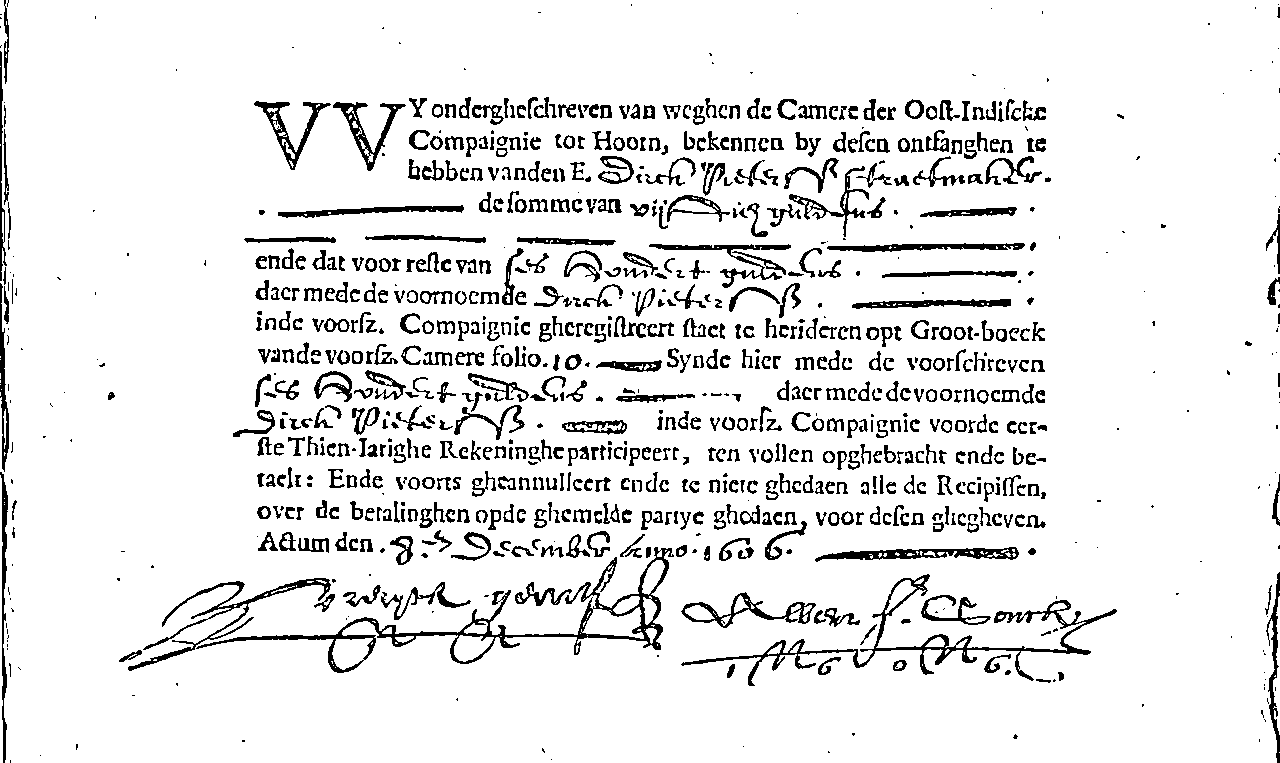 WY ondergheschreven van weghen de Camere der Oost-Indische
Compaignie tot Hoorn, bekennen by desen ontfanghen te
hebben vanden E. Dirck Pietersß straetmaker.
de somme van vijftich guldens.
ende dat voor reste van ses hondert guldens.
daer mede de voornoemde Dirck Pietersß.
inde voorsz. Compaignie gheregistreert staet te herideren opt Groot-boeck
vande voorsz. Camere folio. 10. Synde hier mede de voorschreven
ses hondert guldens. daer mede de voornoemde
Dirck Pietersß. inde voorsz. Compaignie voorde eer-
ste Thien-Iarighe Rekeninghe participeert, ten vollen opghebracht ende be-
taelt: Ende voorts gheannulleert ende te niete ghedaen alle de Recipissen,
over de betalinghen opde ghemelde partye ghedaen, voor desen ghegheven.
Actum den. 8.en December Anno. 1606.